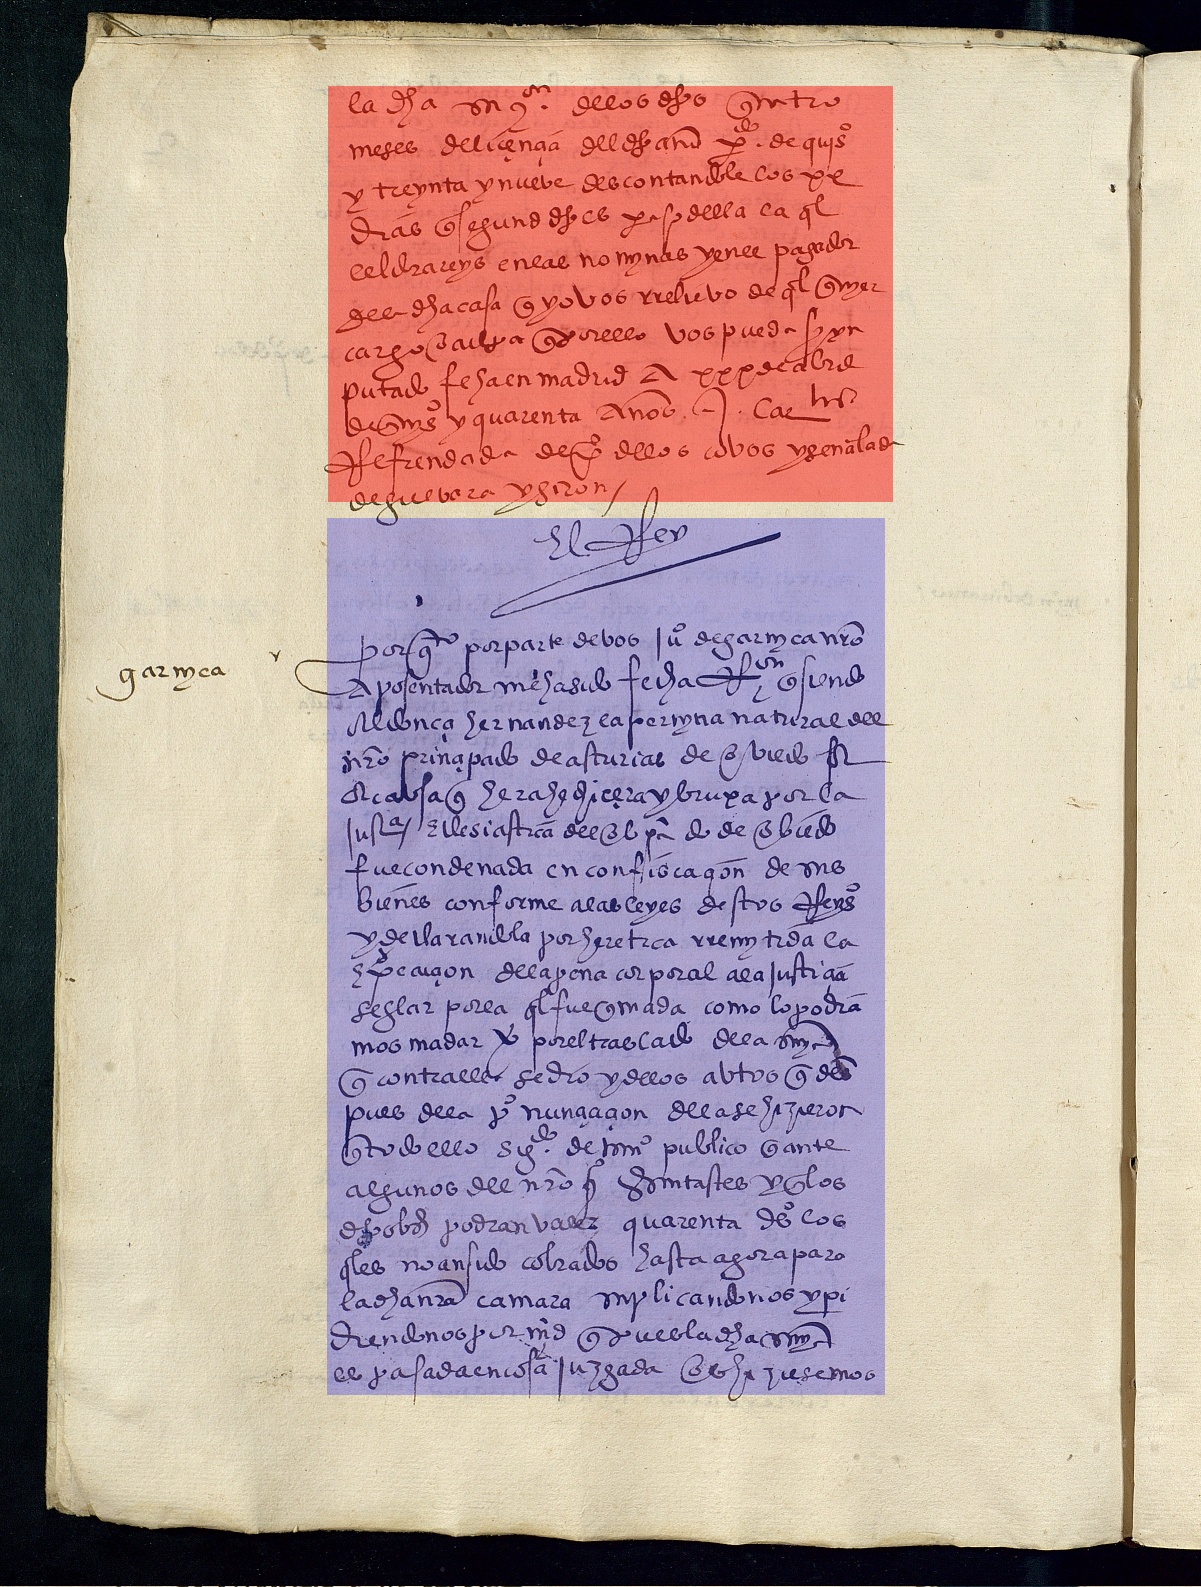 la dha delos dhos quatro
meses de liçençia del dho año pdo. de quis
y treynta y nuebe descontandole los xx
dias que segund dho es della la ql
le librareys en las nominas y en el pagador
de la dha casa que yo vos rreliebo de ql quier
cargo o culpa que por ello vos pueda ser yn
putado fecha en madrid a xxx de abril
de y quarenta años Car lis
Refrendada de po de los covos y señalada
de guebara y giron
El Rey
por qto por parte de vos juo de garnyca nro
garnyca
aposentador me ha sido fecha Ron q siendo
aldonça hernandez la permyna natural del
nro prinçipado de asturias de obiedo
a cabsa q hera hechiçera y bruxa por la
justa eclesiastica del obpado de obiedo
fue condenada en confiscaçion de sus
bienes conforme a las leyes destos Reyos
y declarandola por heretica rremytida la
execuçion de la pena corporal a la justiçia
seglar por la ql fue quemada como lo podria
mos mandar ver por el traslado de la sna
q contra ella se dio y de los abtos q des
pues de la pronunçiaçion della se hizieron
q todo ello sigdo. de scrio publico q ante
algunos del nro presentastes y q los
dhos bs podran valer quarenta dos los
qles no an sido cobrados hasta agora para
la dha nra camara suplicandonos y pi
diendonos por md q pues la dha sna
es pasada en cosa juzgada os hiziesemos